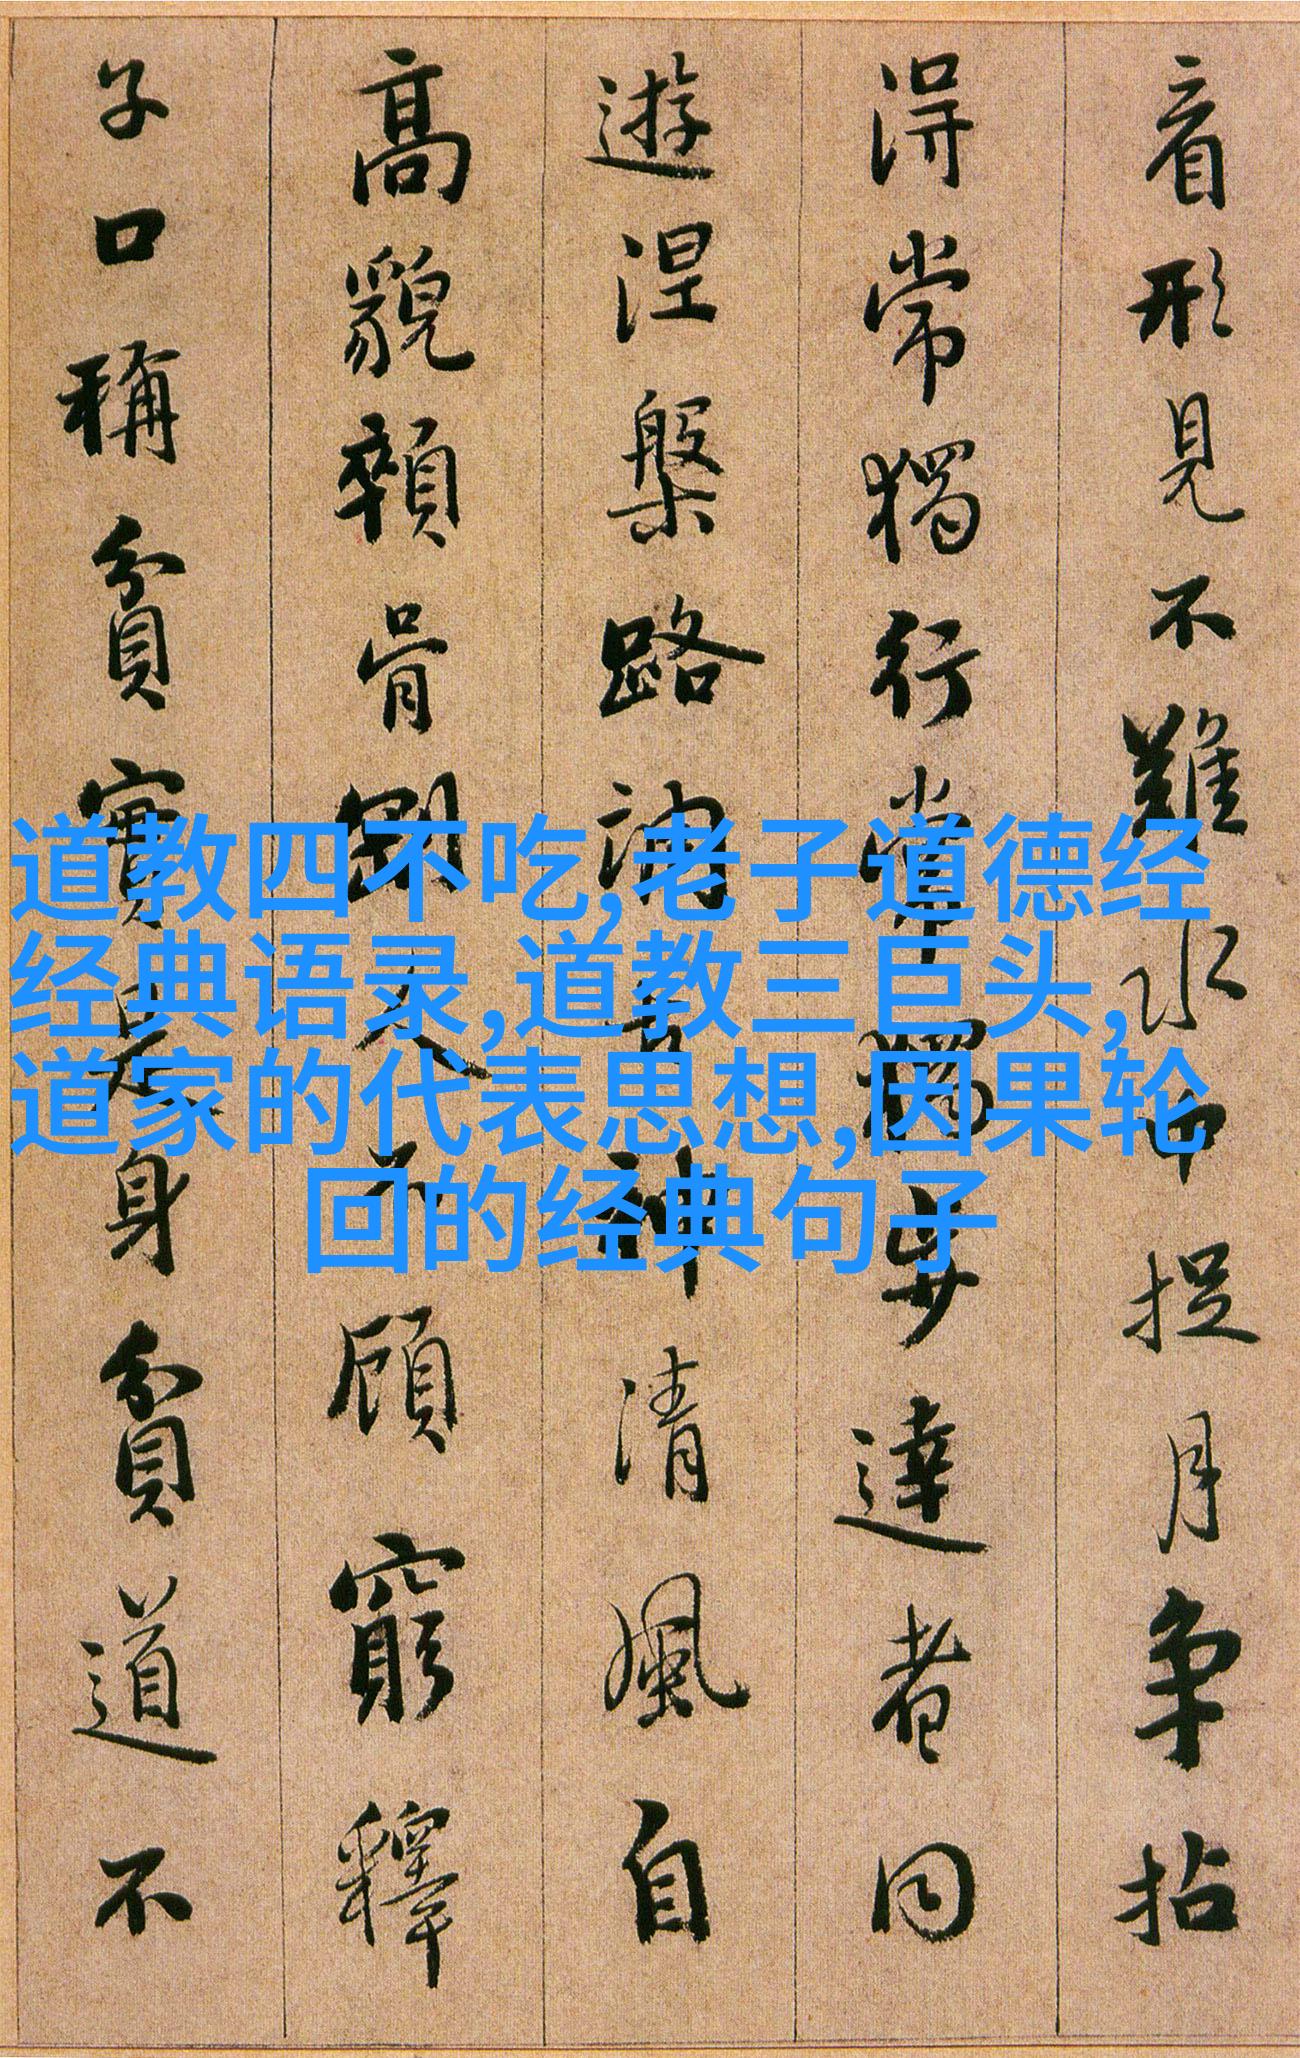 看形見不難水中捉月爭拈
得常獨行常獨步達者同
遊涅槃路調古神清風自
高貌顇骨剛人不顧窮釋
子口稱貧實是身貧道不
道教四不吃,老子道德经
经典语录,道教三巨头,
道家的代表思想,因果轮
回的经典句子